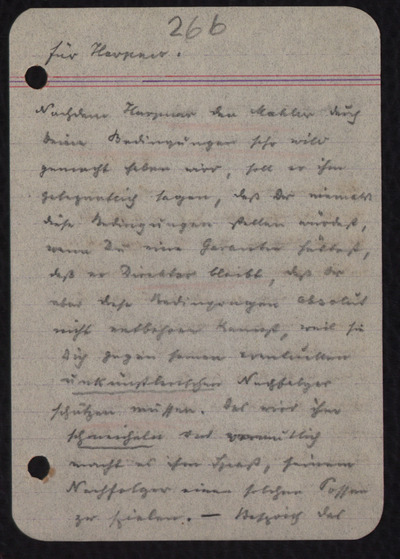 266
für Harpner.
Nachdem Harpner den Mahler durch
Deine Bedingungen sehr wild
gemacht haben wird, soll er ihm
gelegentlich sagen, daß Du niemals
diese Bedingungen stellen würdest,
wenn Du eine Garantie hättest,
daß er Direktor bleibt, daß Du
aber diese Bedingungen absolut
nicht entbehren kannst, weil sie
Dich gegen seinen eventuellen
unkünstlerischen Nachfolger
schützen müssen. Das wird ihm
schmeicheln und vermutlich
macht es ihm Spaß, seinem
Nachfolger einen solchen Possen
zu spielen. — Besprich das